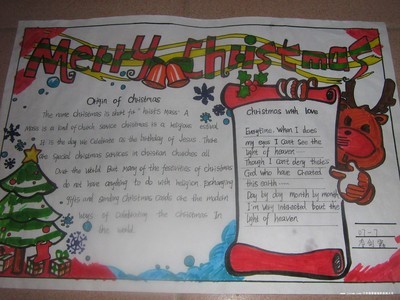 Merry christmas
Origin of christmas
The name christmas is short for "christ's mass". A
mass is a kind of church service christmas is a religious
It is the day we celebrate as the birthday of Jesus. There
are special christmas services in christian churches all
Over the world. But many of the festivities of christmas
do not have anything to do with religion
gifts and sending christmas cards are the modern
ways of celebrating the christmas In
the world.
christmas with love
Everytime. When I does
my eyes I cant See the
light of heaven —
Though I cant deny
God who have Created
this earth —
Day by day month by month
I'm very interested bout the
light of heaven